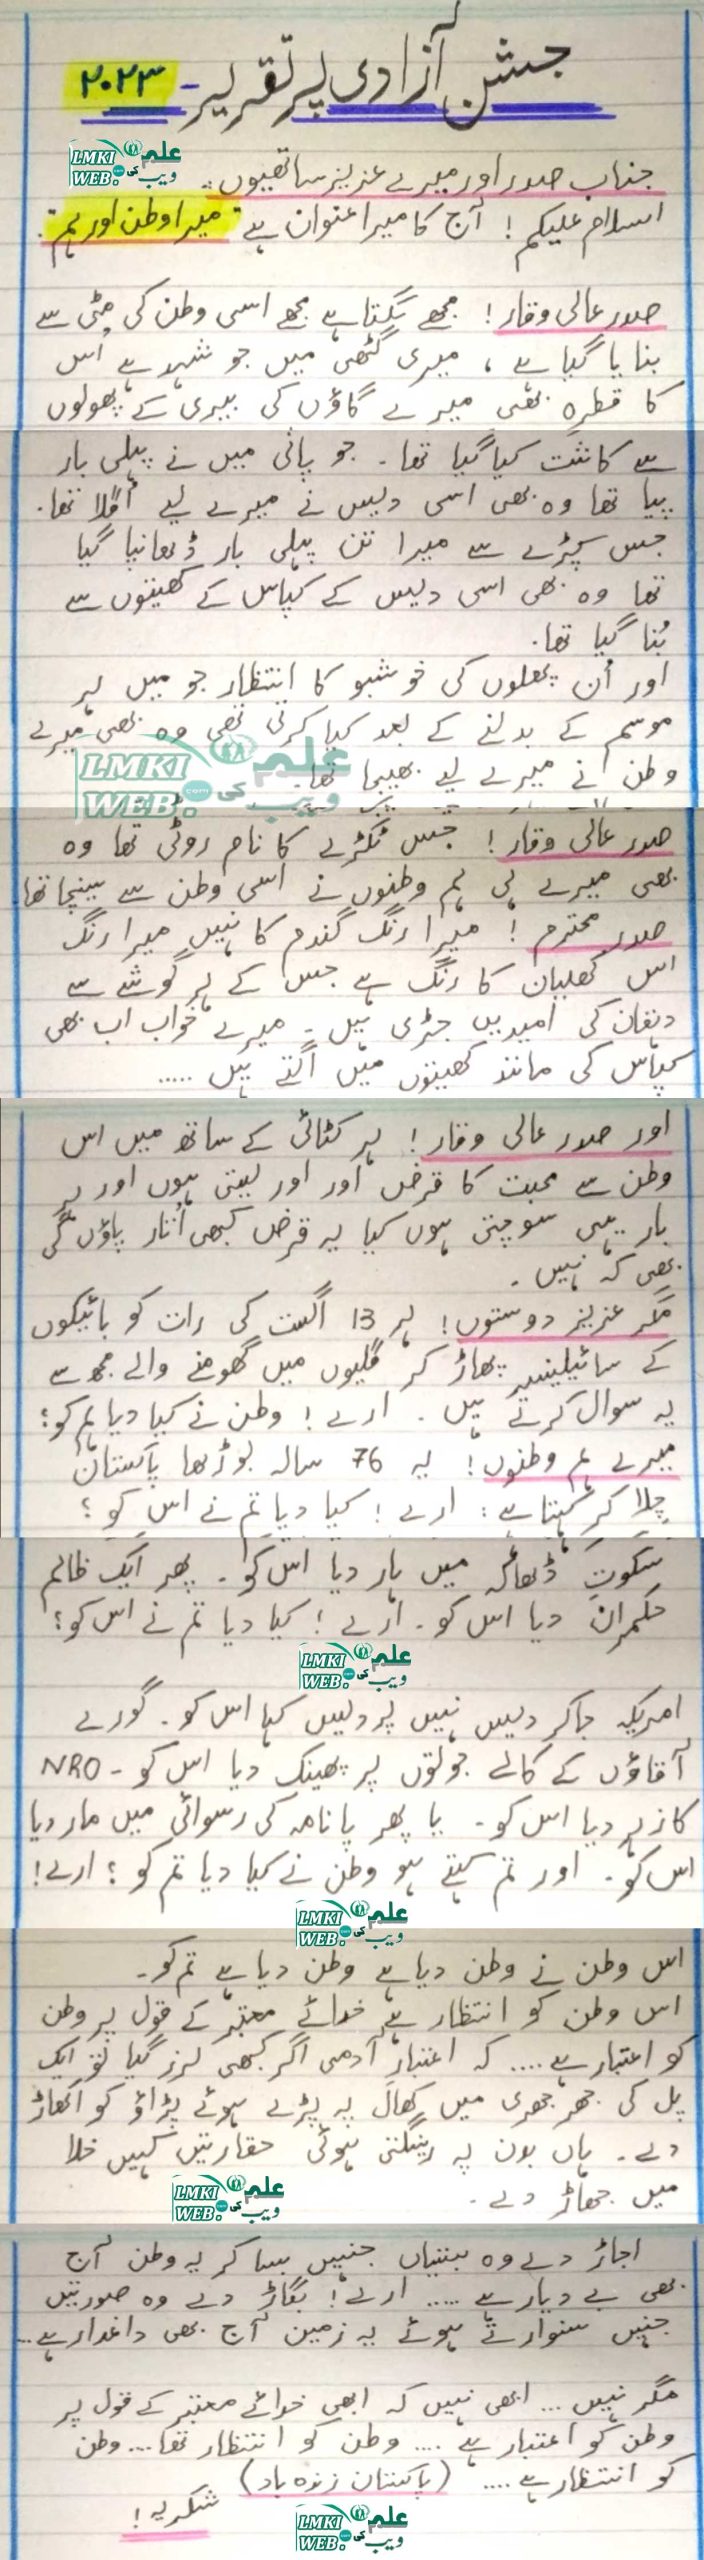 جشن آزادی پر تقریر - ۲۰۲۳
LMKI WEB.com علم کی ویب
جناب صدر اور میرے عزیز ساتھیوں :
اسلام علیکم ! آج کا میرا عنوان ہے "میرا وطن اور ہم".
صدر عالی وقار ! مجھے لگتا ہے مجھے اسی وطن کی مٹی سے
بنایا گیا ہے ، میری گٹھی میں جو شہد ہے اُس
کا قطرہ بھی میرے گاؤں کی بیری کے پھولوں
سے کاشت کیا گیا تھا ۔ جو پانی میں نے پہلی بار
پیا تھا وہ بھی اسی دیس نے میرے لیے اُگلا تھا.
جس کپڑے سے میرا تن پہلی بار ڈھانپا گیا
تھا وہ بھی اسی دیس کے کپاس کے کھیتوں سے
بُنا گیا تھا.
اور اُن پھلوں کی خوشبو کا انتظار جو میں ہر
موسم کے بدلنے کے بعد کیا کرتی تھی وہ بھی میرے
وطن نے میرے لیے بھیجا تھا.
LMKI WEB.com علم کی ویب
صدر عالی وقار ! جس ٹکڑے کا نام روٹی تھا وہ
بھی میرے ہی ہم وطنوں نے اسی وطن سے سینچا تھا
صدر محترم ! میرا رنگ گندم کا نہیں میرا رنگ
اس کھلیان کا رنگ ہے جس کے ہر گوشے سے
دہقان کی امیدیں جڑی ہیں ۔ میرے خواب اب بھی
کپاس کی مانند کھیتوں میں اُگتے ہیں .....
اور صدر عالی وقار ! ہر کٹائی کے ساتھ میں اس
وطن سے محبت کا قرض اور اور لیتی ہوں اور ہر
بار یہی سوچتی ہوں کیا یہ قرض کبھی اُتار پاؤں گی
بھی کہ نہیں .
مگر عزیز دوستوں ! ہر 13 اگست کی رات کو بائیکوں
کے سائیلینسر پھاڑ کر گلیوں میں گھومنے والے مجھ سے
یہ سوال کرتے ہیں . ارے ! وطن نے کیا دیا ہم کو ؟
میرے ہم وطنوں ! یہ 76 سالہ بوڑھا پاکستان
چلا کر کہتا ہے : ارے ! کیا دیا تم نے اس کو ؟
سکوتِ ڈھاکہ میں ہار دیا اس کو . پھر ایک ظالم
حکمران دیا اس کو . ارے ! کیا دیا تم نے اس کو ؟
LMKI WEB.com علم کی ویب
امریکہ جاکر دیس نہیں پردیس کہا اس کو . گورے
آقاؤں کے کالے جوتوں پر پھینک دیا اس کو - NRO
کا زہر دیا اس کو . یا پھر پانامہ کی رسوائی میں مار دیا
اس کو . اور تم کہتے ہو وطن نے کیا دیا تم کو ؟ ارے !
LMKI WEB.com علم کی ویب
اس وطن نے وطن دیا ہے وطن دیا ہے تم کو .
اس وطن کو انتظار ہے خدائے معتبر کے قول پر وطن
کو اعتبار ہے .... کہ اعتبار آدمی اگر کبھی لرز گیا تو ایک
پل کی جھرجھری میں کھال پہ پڑے ہوئے پڑاؤ کو اکھاڑ
دے . ہاں بدن پہ رینگتی ہوئی حقارتیں کہیں خلا
میں جھاڑ دے .
LMKI WEB.com علم کی ویب
اجاڑ دے وہ بستیاں جنہیں بسا کر یہ وطن آج
بھی بے دیار ہے ..... ارے ! بگاڑ دے وہ صورتیں
جنہیں سنوارتے ہوئے یہ زمین آج بھی داغدار ہے ...
مگر نہیں ... ابھی نہیں کہ ابھی خدائے معتبر کے قول پر
وطن کو اعتبار ہے .... وطن کو انتظار تھا ... وطن
کو انتظار ہے .... (پاکستان زندہ باد) شکریہ !
LMKI WEB.com علم کی ویب